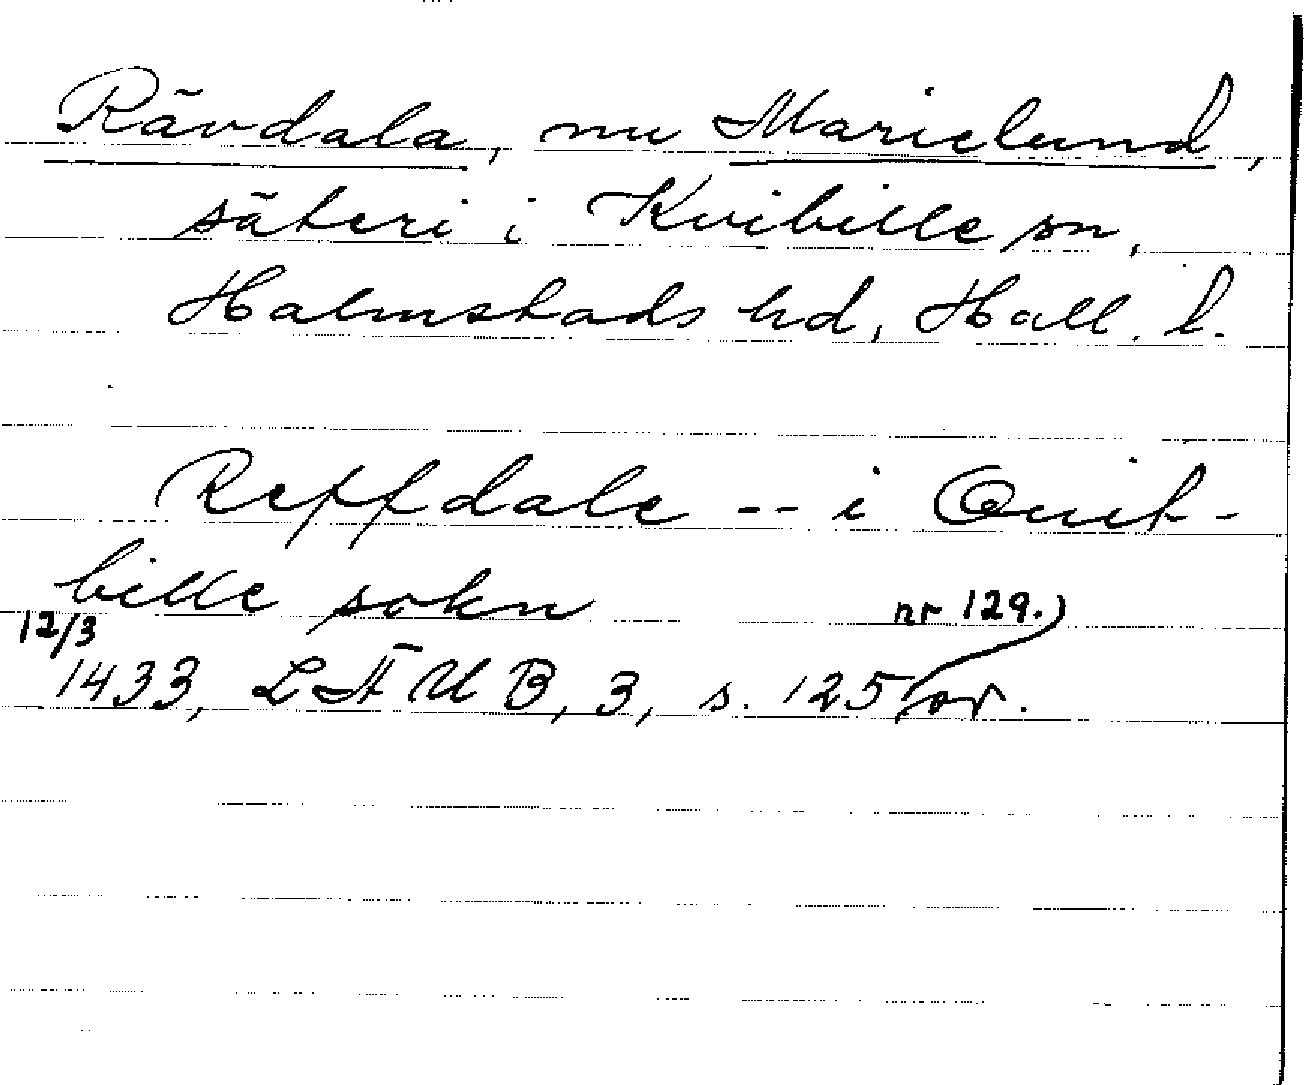 Rävdala, nu Marielund,
säteri i Kvibille sn,
Halmstads hd, Hall. l.
Reffdale -- i Quit-
bille sokn
nr 129.)
12/3
1433, LÄUB, 3, s. 125 or.